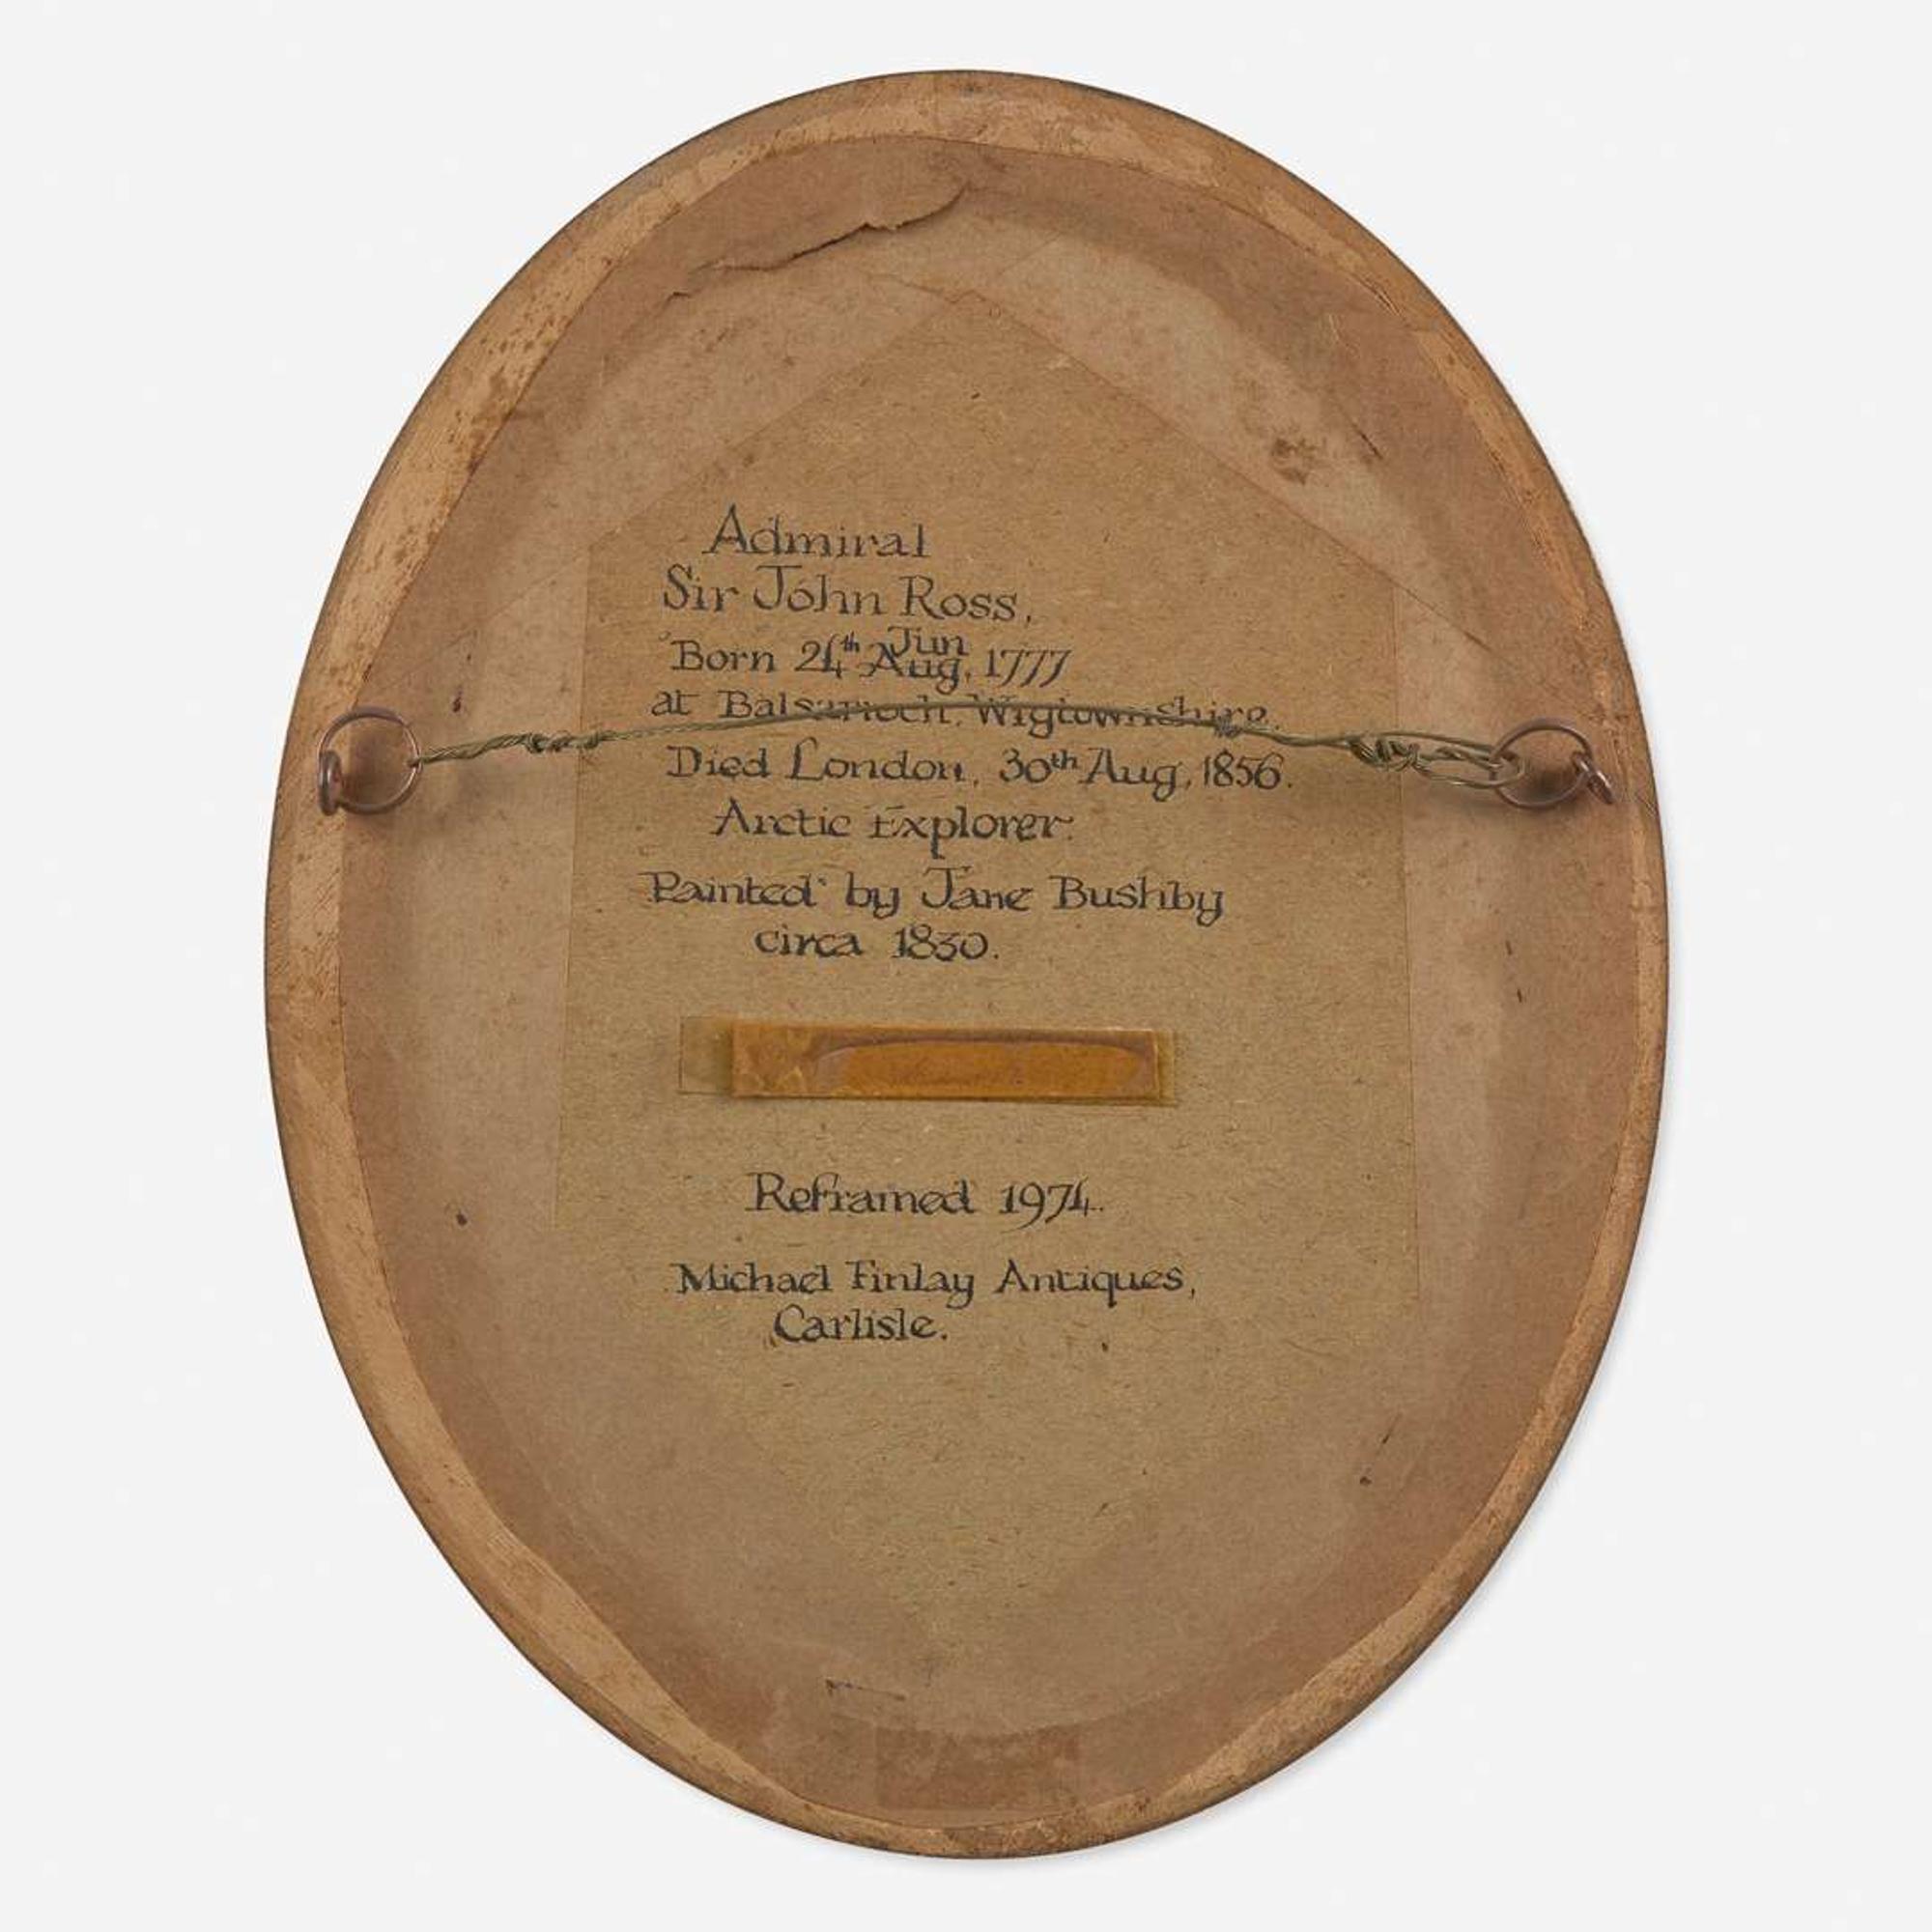 Admiral
Sir John Ross,
Jun
Born 24th Aug, 1777
at Balsarroch, Wigtownshire.
Died London, 30th Aug, 1856.
Arctic Explorer.
Painted by Jane Bushby
circa 1830.
Reframed 1974.
Michael Finlay Antiques,
Carlisle.